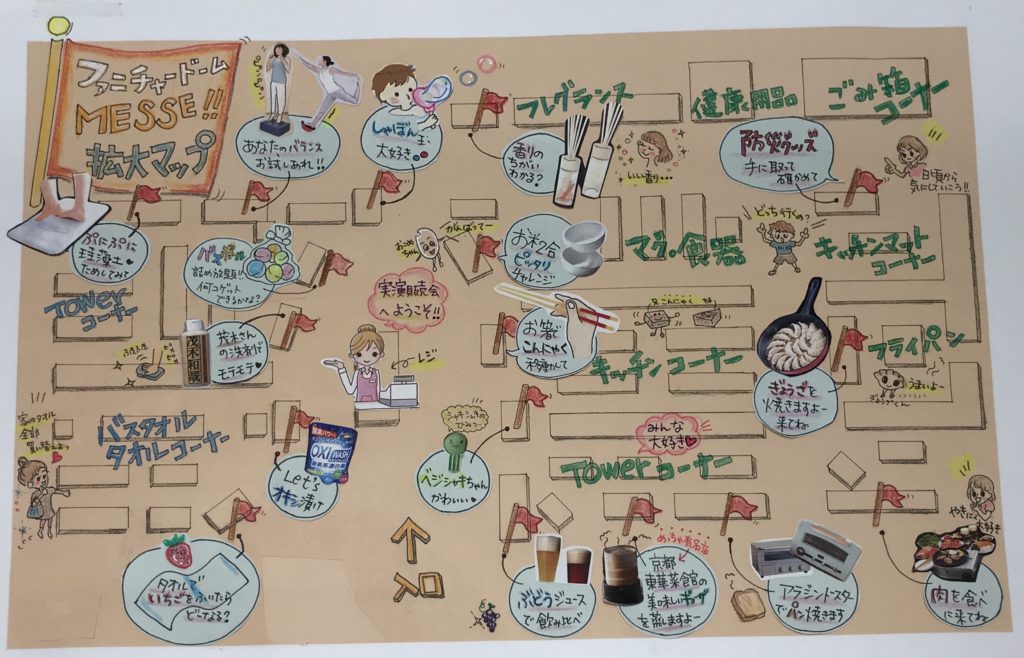 ファニチャードーム
MESSE!!
拡大マップ
あなたのバランス
お試しあれ!!
しゃぼん玉
大好き
フレグランス
香りの
ちがい
わかる?
いい香り…
健康用品
ごみ箱
コーナー
防災グッズ
手に取って
確かめて
日頃から
気にしていこう!!
ぷにぷに
珪藻土
ためしてみて
TOWER
コーナー
バスボール
詰め放題!
何コゲット
できるかな?
がんばってー
お米2合
ピッタリ
チャレンジ
マグ・食器
どっち行くの?
キッチンマット
コーナー
実演販売会
へようこそ!!
茂木和哉
茂木さん
の洗剤で
モテモテ
レジ
お箸で
こんにゃく
移動かして
キッチンコーナー
ぎょうざを
焼きますよー
来てね
フライパン
うまいよー
ぎょうざくん
家のタオル
全部
買い替えよっ
バスタオル
タオルコーナー
OXI
WASH
Let's
オキシ漬け
シャキシャキの
ひみつ…
ベジシャキちゃん
かわいい
みんな
大好き
TOWERコーナー
やきにく
大好き
タオルで
いちごをふいたら
どーなる?
入口
ぶどうジュース
で飲み比べ
めっちゃ有名店
京都
東華菜館の
美味しいギョーザ
を蒸しますよー
アラジントースター
でパン焼きます
肉を食べ
に来てね